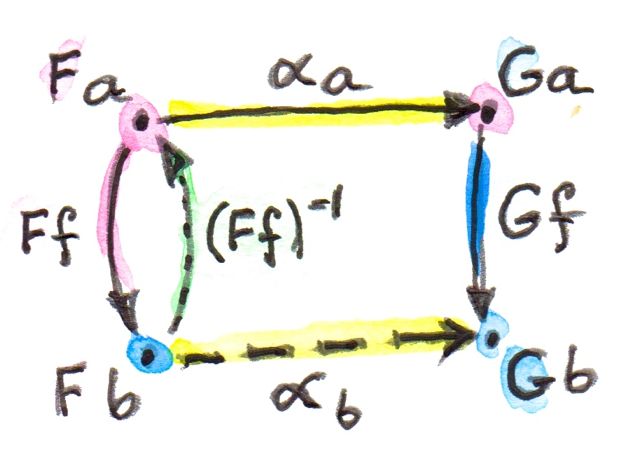 Fa αa Ga
Ff (Ff)⁻¹ Gf
Fb α_b Gb